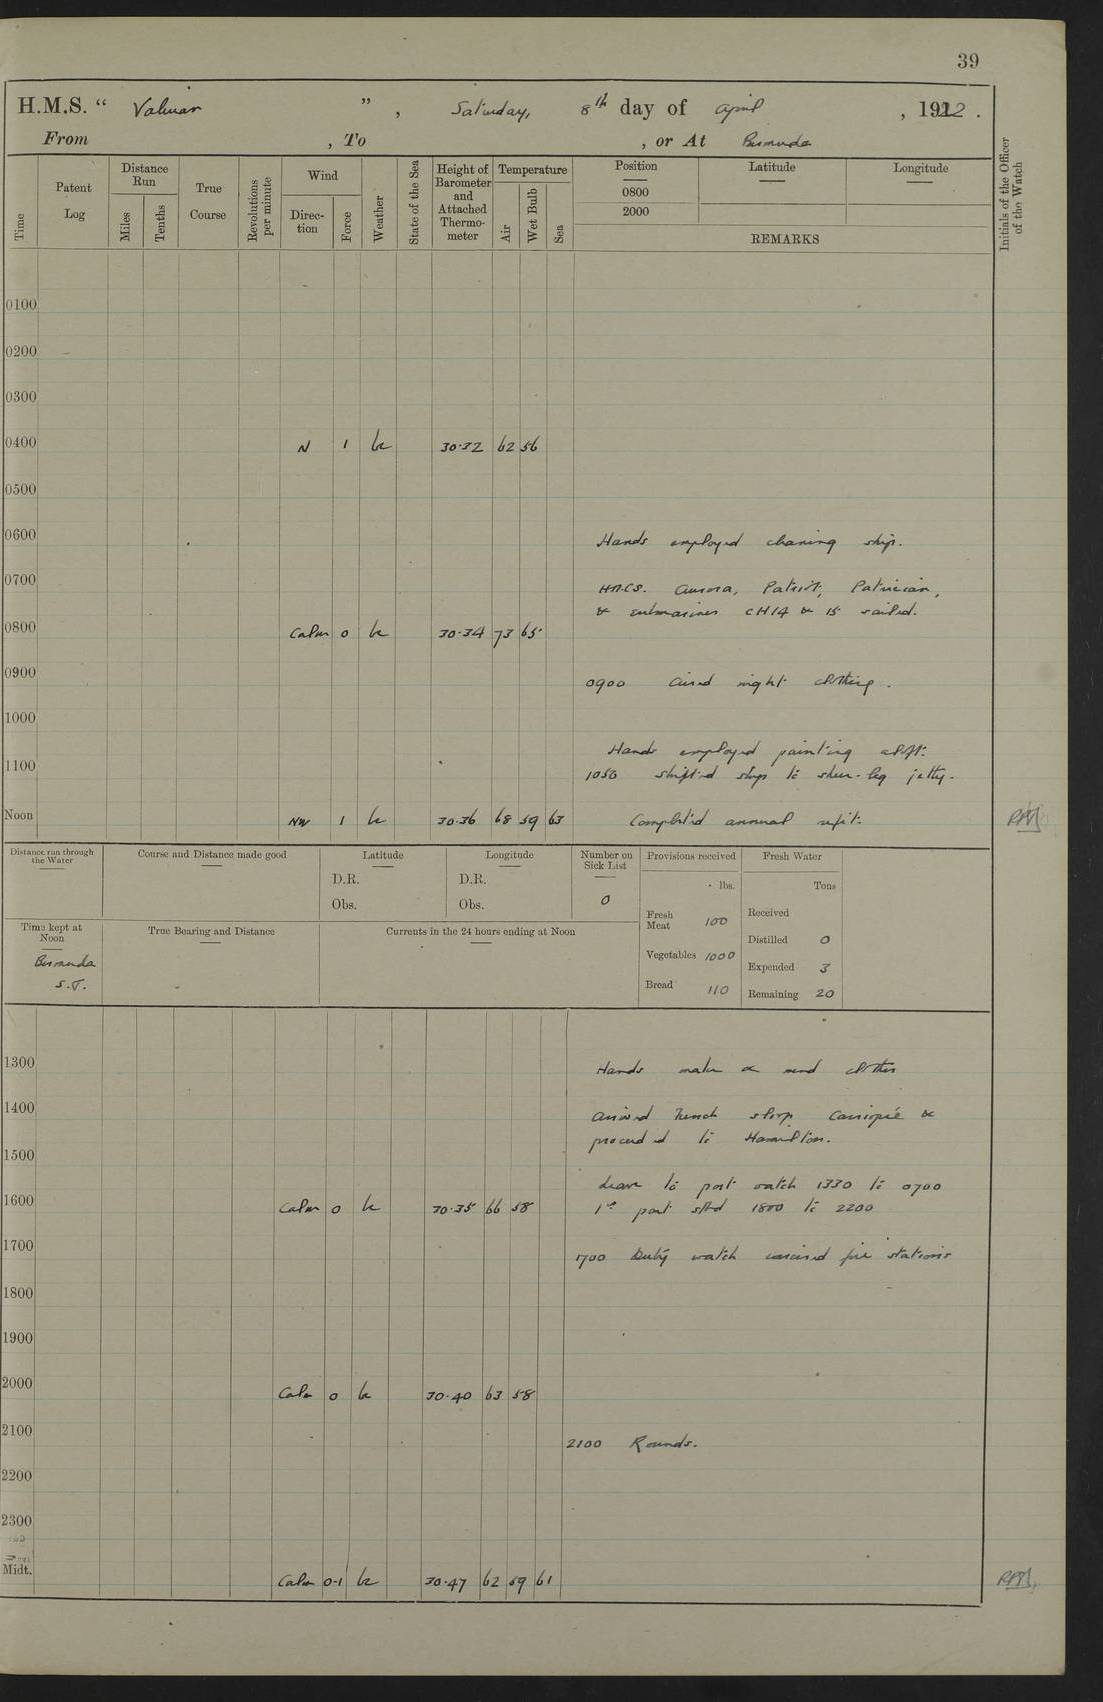 39
H.M.S. “ Valerian ”, Saturday, 8th day of April , 1922 .
From , To , or At Bermuda
Time
Patent Log
Distance Run
Miles
Tenths
True Course
Revolutions per minute
Wind
Direction
Force
Weather
State of the Sea
Height of Barometer and Attached Thermometer
Temperature
Air
Wet Bulb
Sea
Position
0800
2000
Latitude
Longitude
REMARKS
Initials of the Officer of the Watch
0100
0200
0300
0400 N 1 bc 30·32 62 56
0500
0600 Hands employed cleaning ship.
0700 H.M.C.S. Aurora, Patriot, Patrician,
& submarines CH14 & 15 sailed.
0800 Calm 0 bc 30·34 73 65
0900 0900 Aired night clothing.
1000
Hands employed painting aft.
1100 1050 shifted ship to sheer-leg jetty.
Noon NW 1 bc 30·36 68 59 63 Completed annual refit.
Distance run through the Water
Course and Distance made good
Latitude
D.R.
Obs.
Longitude
D.R.
Obs.
Number on Sick List
0
Provisions received
lbs.
Fresh Meat 100
Vegetables 1000
Bread 110
Fresh Water
Tons
Received
Distilled 0
Expended 3
Remaining 20
Time kept at Noon
Bermuda
S.T.
True Bearing and Distance
Currents in the 24 hours ending at Noon
1300 Hands make & mend clothes
1400 Arrived French sloop Cassiopée &
proceeded to Hamilton.
1500
Leave to port watch 1330 to 0700
1600 Calm 0 bc 30·35 66 58 1st part stbd 1800 to 2200
1700 1700 Duty watch exercised fire stations
1800
1900
2000 Calm 0 bc 30·40 63 58
2100 2100 Rounds.
2200
2300
Midt. Calm 0-1 bc 30·47 62 59 61